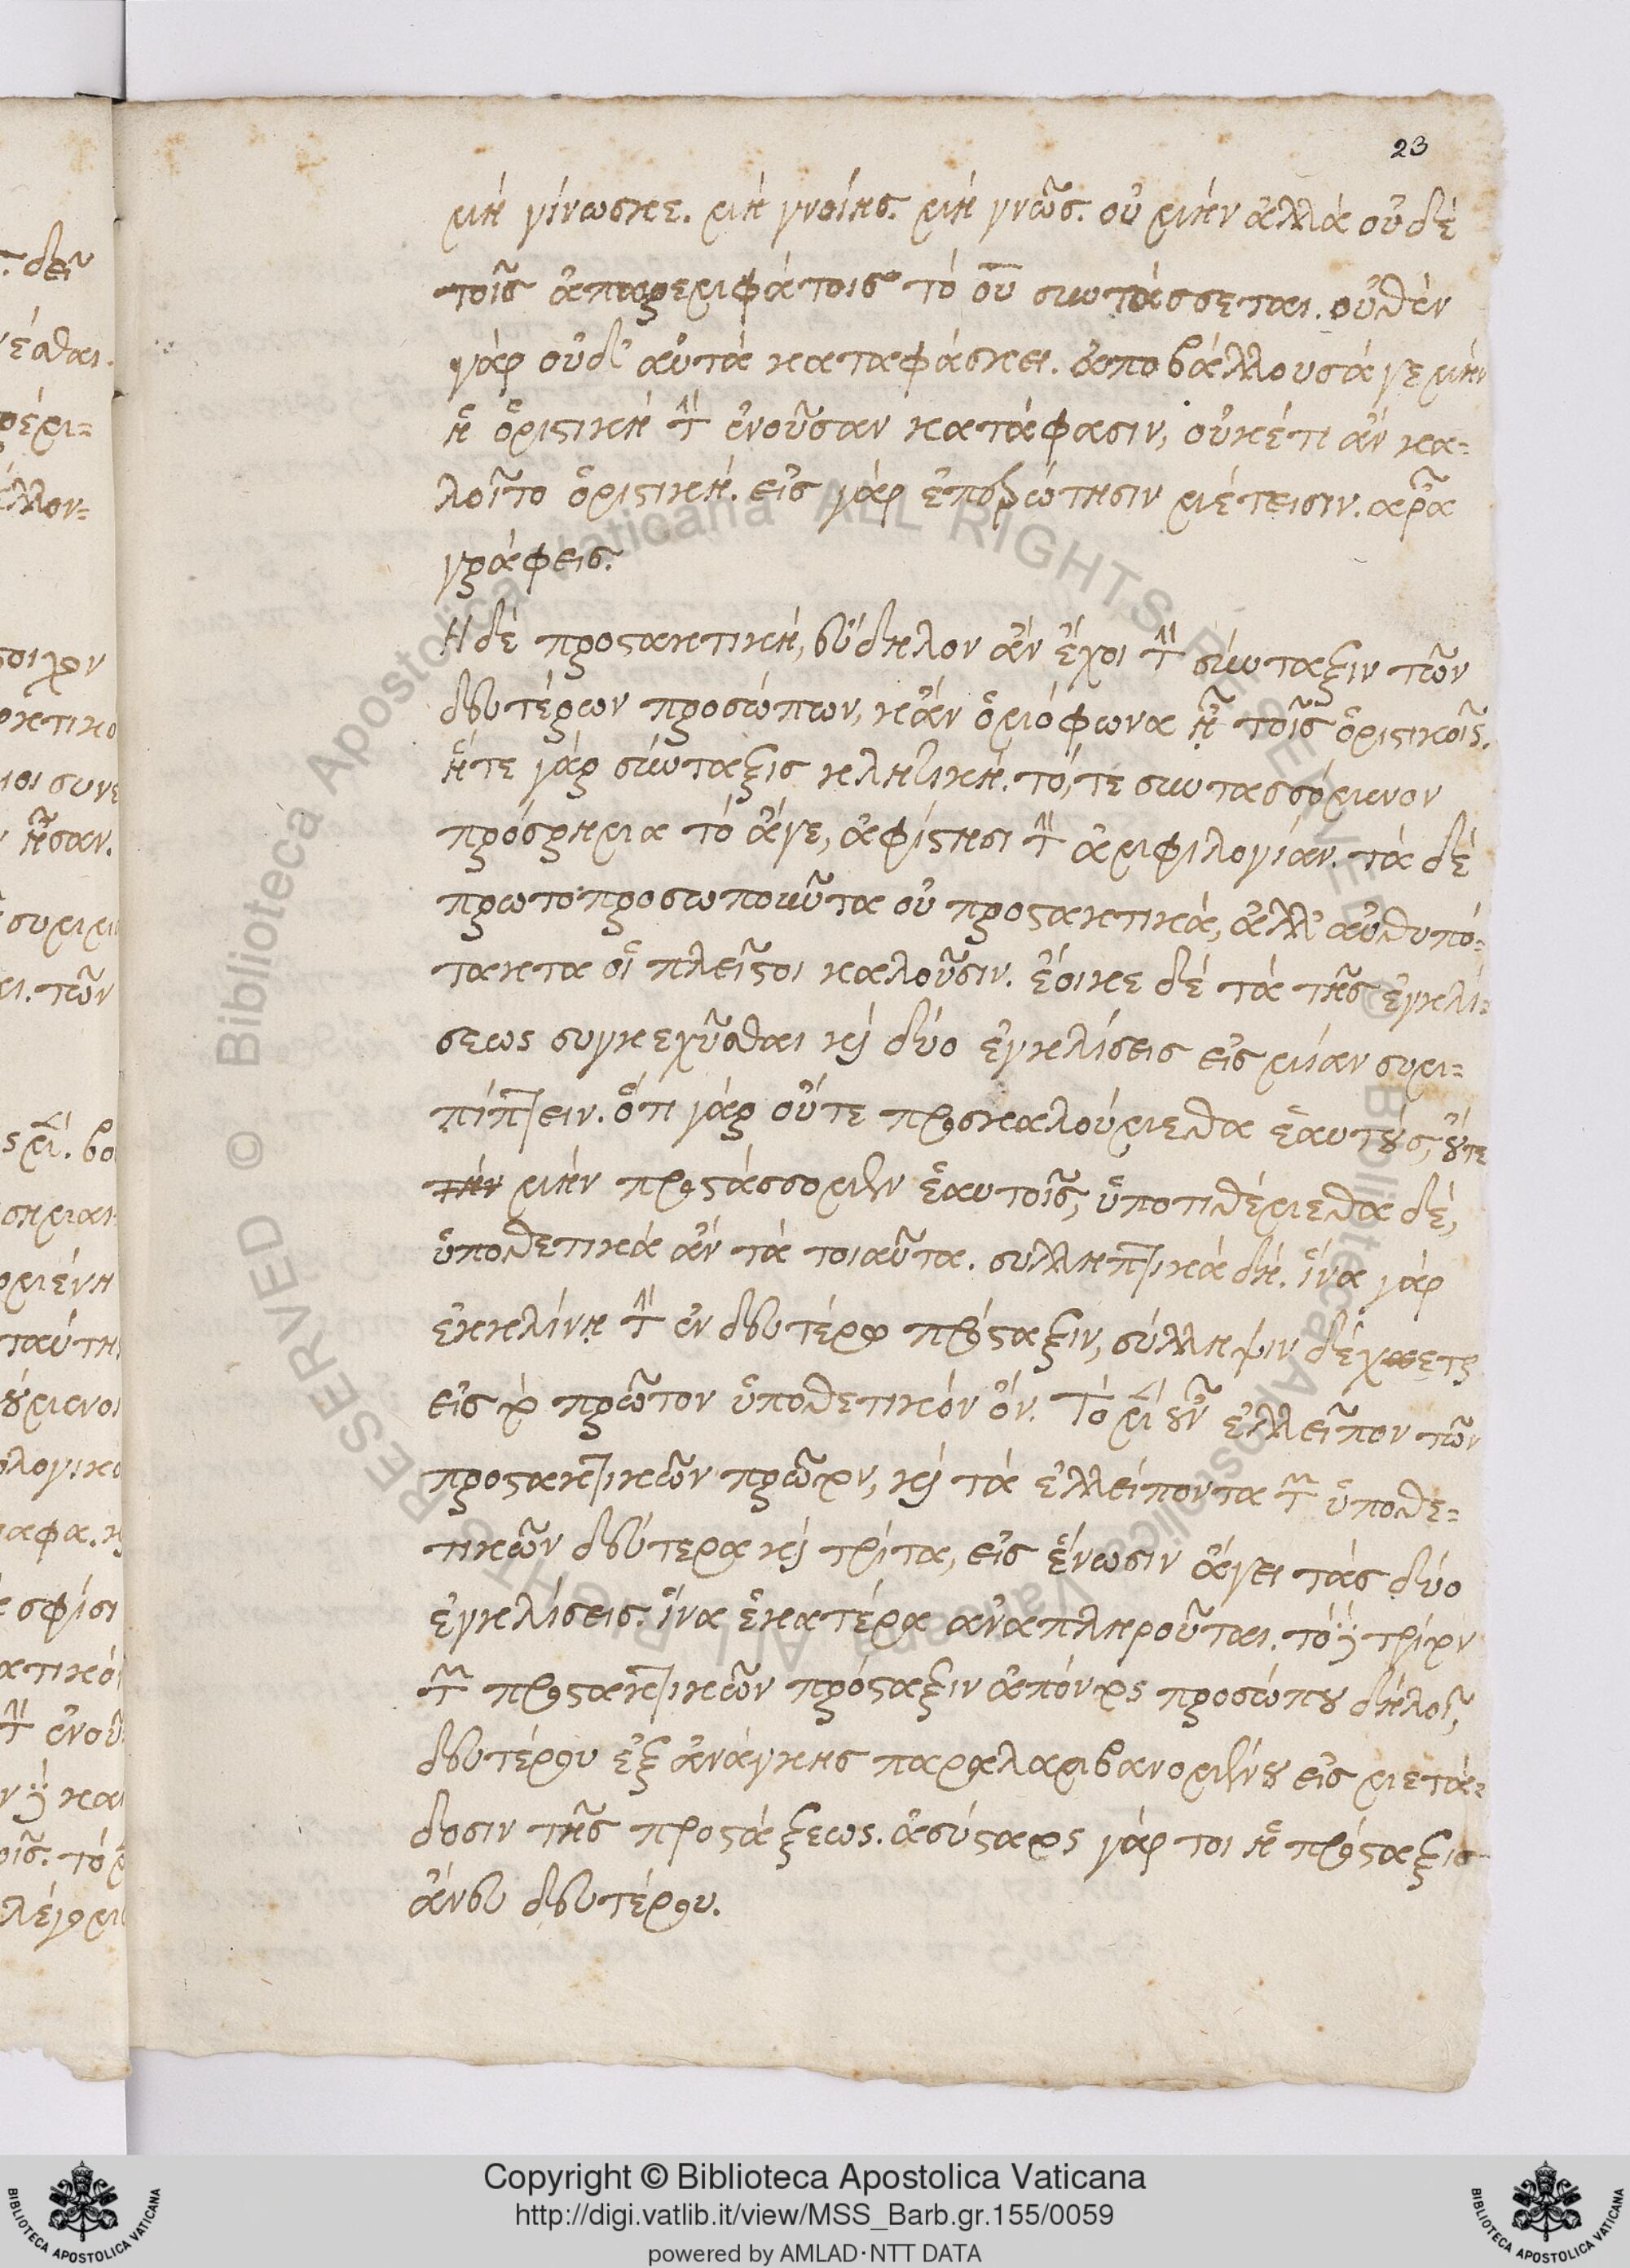 23
μὴ γίνωσκε. μὴ γνοίης. μὴ γνῶς. οὐ μὴν ἀλλὰ οὐδὲ
τοῖς ἀπαρεμφάτοις τὸ οὐ συντάσσεται. οὐθὲν
γὰρ οὐδ' αὐτὰ καταφάσκει. ἀποβάλλουσά γε μὴν
ἡ ὁριστικὴ τὴν ἐνοῦσαν κατάφασιν, οὐκέτι ἂν κα-
λοῖτο ὁριστική. εἰς γὰρ ἐπερώτησιν μέτεισιν. ἆρα
γράφεις.
Η δὲ προστακτική, εὔδηλον ἂν ἔχοι τὴν σύνταξιν τῶν
δευτέρων προσώπων, κἂν ὁμόφωνα ᾖ τοῖς ὁριστικοῖς.
ἥτε γὰρ σύνταξις κλητική. τό, τε συντασσόμενον
πρόσρημα τὸ ἄγε, ἀφίστησι τὴν ἀμφιλογίαν. τὰ δὲ
πρωτοπροσωποῦντα οὐ προστακτικά, ἀλλ' ἀνθυπό-
τακτα οἱ πλεῖστοι καλοῦσιν. ἔοικε δὲ τὰ τῆς ἐγκλί-
σεως συγκεχῦσθαι καὶ δύο ἐγκλίσεις εἰς μίαν συμ-
πίπτειν. ὅτι γὰρ οὔτε προσκαλούμεθα ἑαυτούς, οὔτε
μὴν προστάσσομεν ἑαυτοῖς, ὑποτιθέμεθα δέ,
ὑποθετικὰ ἂν τὰ τοιαῦτα. συλληπτικὰ δή. ἵνα γὰρ
ἐκκλίνῃ τὴν ἐν δευτέρῳ πρόσταξιν, σύλληψιν δέχεται
εἰς τὸ πρῶτον ὑποθετικὸν ὄν. Τὸ μὲν οὖν ἐλλεῖπον τῶν
προστακτικῶν πρῶτον, καὶ τὰ ἐλλείποντα τῶν ὑποθε-
τικῶν δεύτερα καὶ τρίτα, εἰς ἕνωσιν ἄγει τὰς δύο
ἐγκλίσεις. ἵνα ἑκατέρα ἀναπληροῦται. τὸ δὲ τρίτον
τῶν προστακτικῶν πρόσταξιν ἀπόντος προσώπου δηλοῖ,
δευτέρου ἐξ ἀνάγκης παραλαμβανομένου εἰς μετά-
δοσιν τῆς προστάξεως. ἀσύστατος γάρ τοι ἡ πρόσταξις
ἄνευ δευτέρου.
Copyright © Biblioteca Apostolica Vaticana
http://digi.vatlib.it/view/MSS_Barb.gr.155/0059
powered by AMLAD·NTT DATA